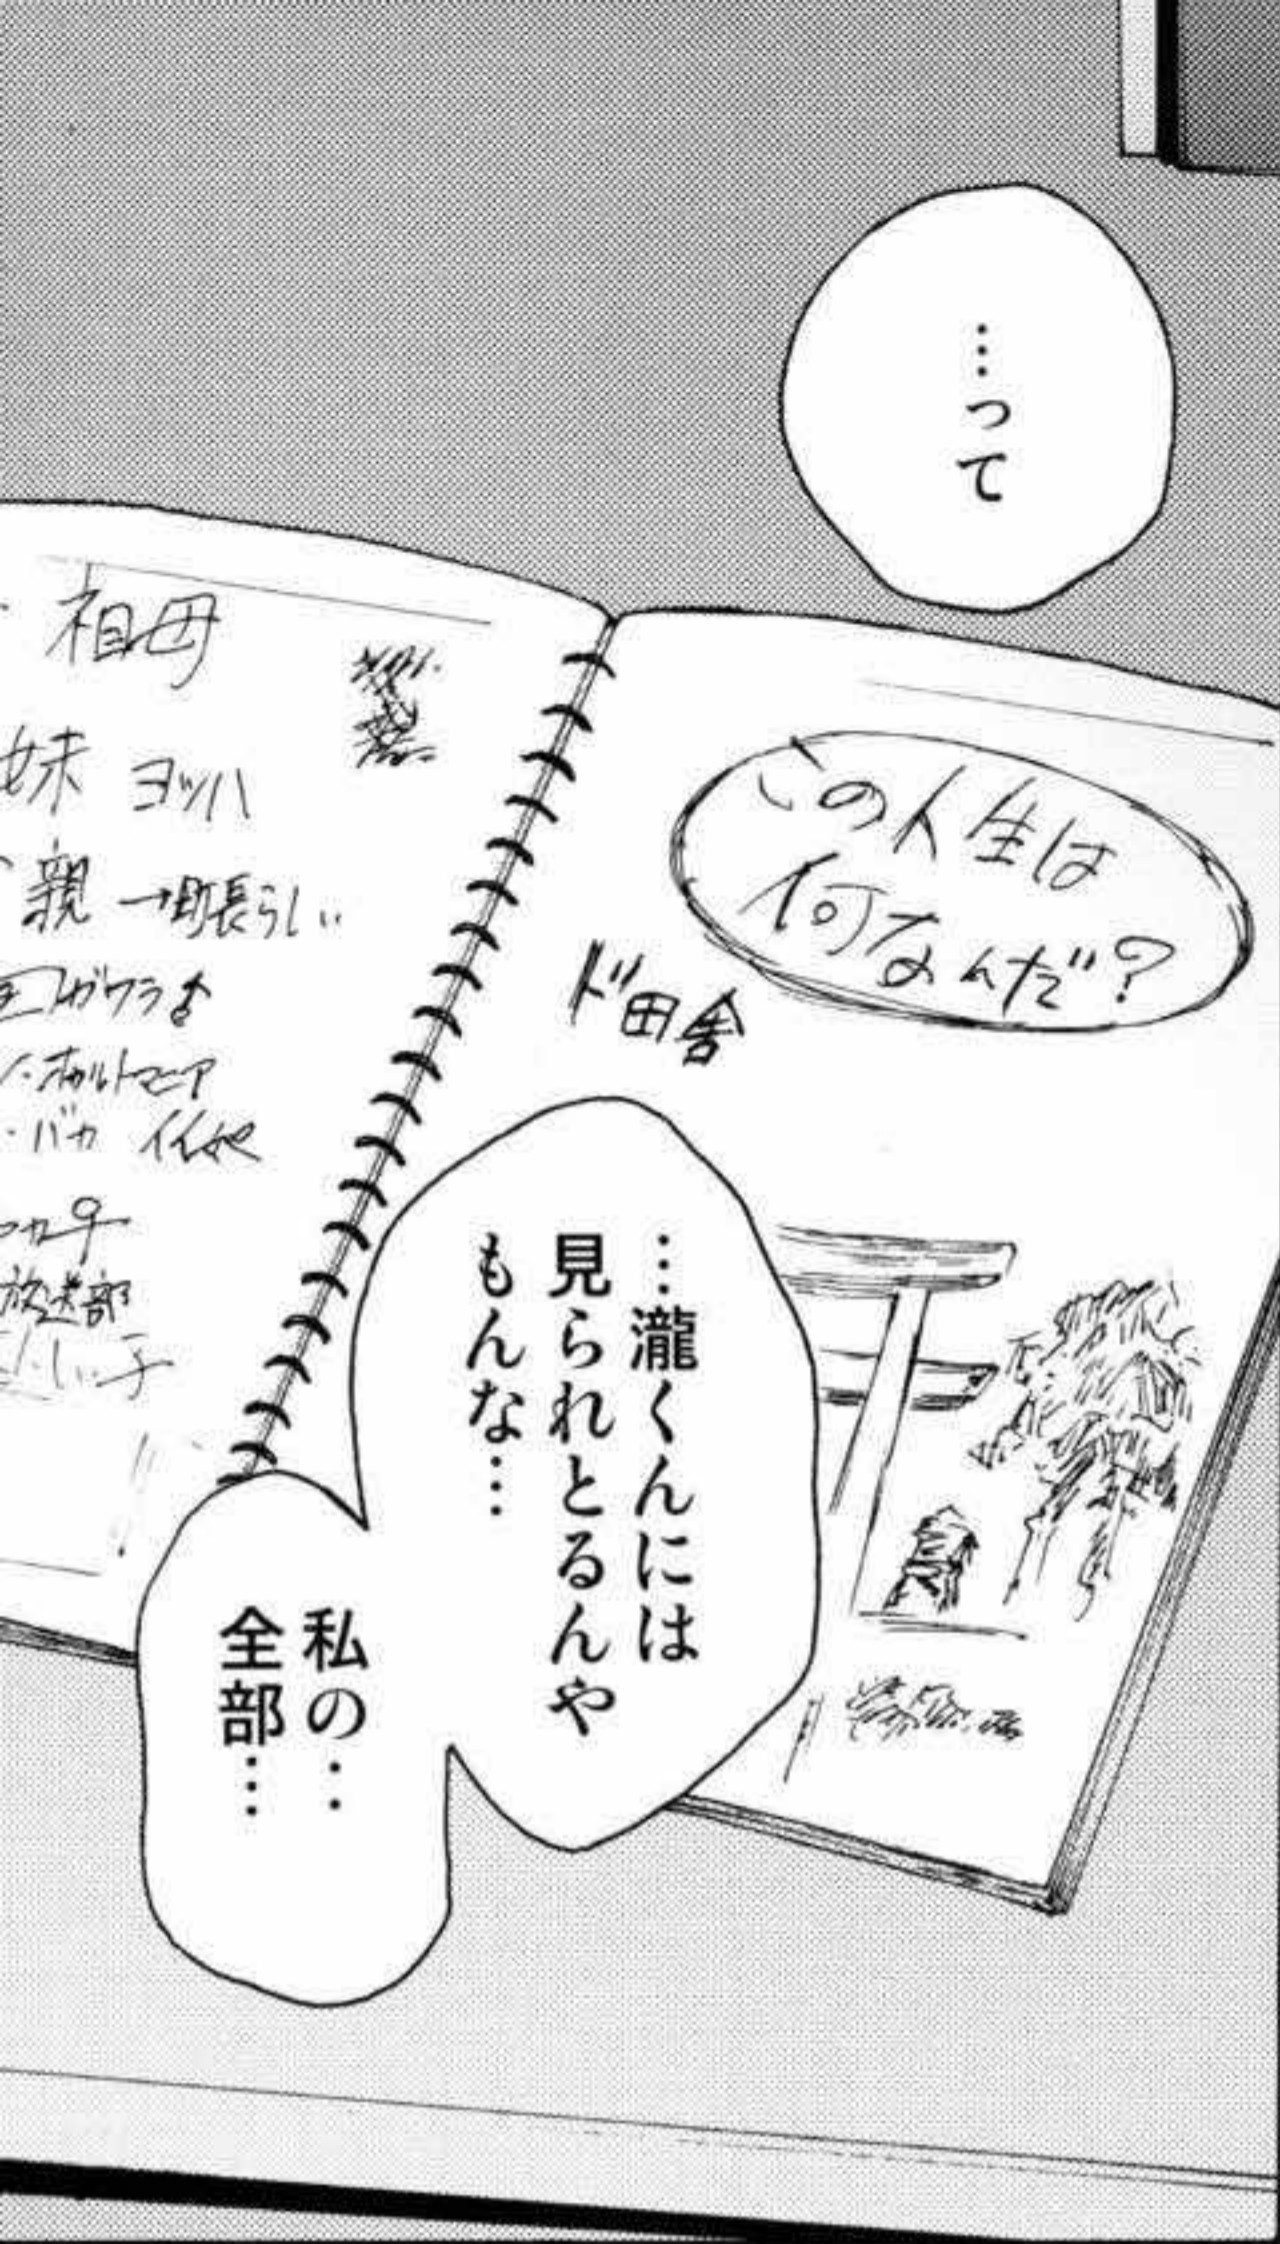 …って
この人生は
何なんだ?
ド田舎
…瀧くんには
見られとるんや
もんな…
私の‥
全部…
祖母
妹 ヨツハ
親 →町長らしい
ガワラ♂
オカルトマニア
・バカ イイ奴
放送部